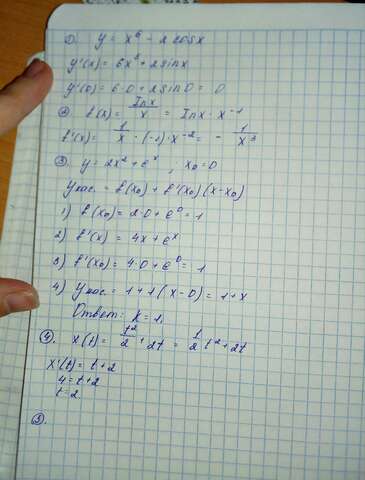 1). y = x⁶ - 2cosx
y'(x) = 6x⁵ + 2sinx
y'(0) = 6·0 + 2sin0 = 0
2) f(x) = lnx/x = lnx · x⁻¹
f'(x) = 1/x · (-1) · x⁻² = - 1/x³
3) y = 2x² + eˣ ; x₀ = 0
Yкас. = f(x₀) + f'(x₀)(x-x₀)
1) f(x₀) = 2·0 + e⁰ = 1
2) f'(x) = 4x + eˣ
3) f'(x₀) = 4·0 + e⁰ = 1
4) Yкас. = 1 + 1(x-0) = 1+x
Ответ: k = 1.
4). x(t) = t²/2 + 2t = 1/2 t² + 2t
x'(t) = t+2
4 = t+2
t = 2
5).